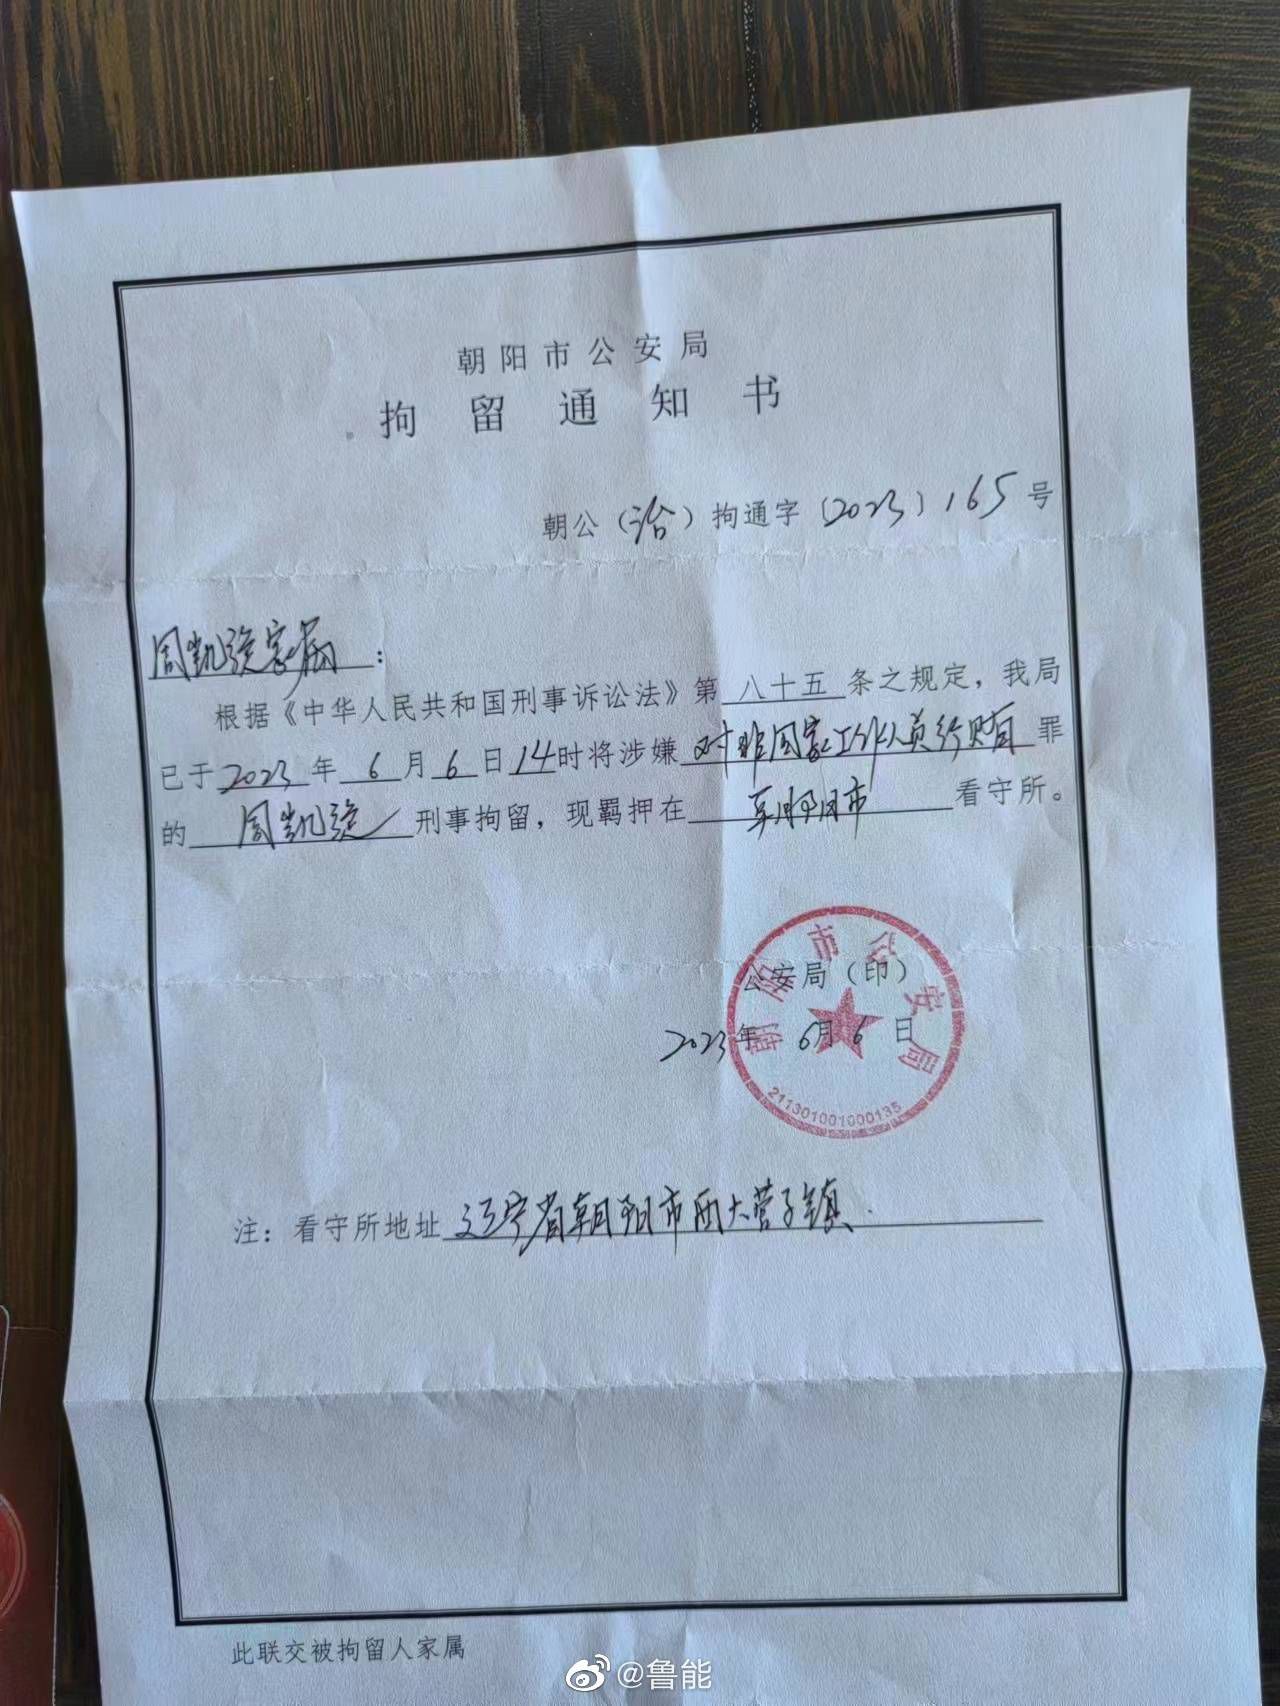 朝阳市公安局
拘留通知书
朝公（治）拘通字〔2023〕165号
周凯旋家属：
根据《中华人民共和国刑事诉讼法》第八十五条之规定，我局
已于2023年6月6日14时将涉嫌对非国家工作人员行贿罪
的周凯旋刑事拘留，现羁押在朝阳市看守所。
公安局（印）
2023年6月6日
朝阳市公安局
211301001000135
注：看守所地址辽宁省朝阳市西大营子镇.
此联交被拘留人家属
@鲁能